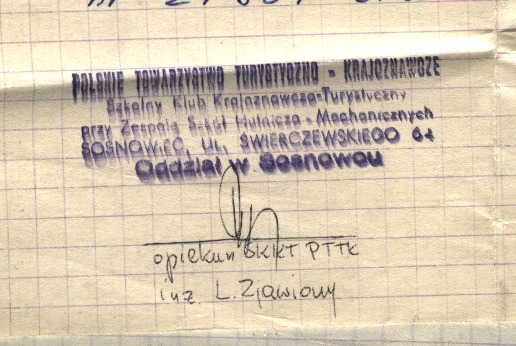 POLSKIE TOWARZYSTWO TURYSTYCZNO - KRAJOZNAWCZE
Szkolny Klub Krajoznawczo-Turystyczny
przy Zespole Szkół Hutniczo - Mechanicznych
SOSNOWIEC, UL. ŚWIERCZEWSKIEGO 64
Oddział w Sosnowcu
opiekun SKKT PTTK
inż. L. Zjawiony